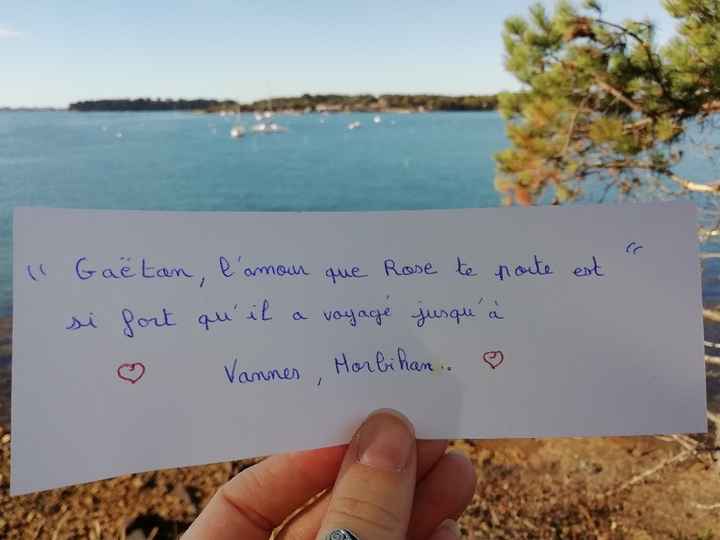 “ Gaëtan, l'amour que Rose te porte est “
si fort qu'il a voyagé jusqu'à
♡ Vannes, Morbihan.. ♡